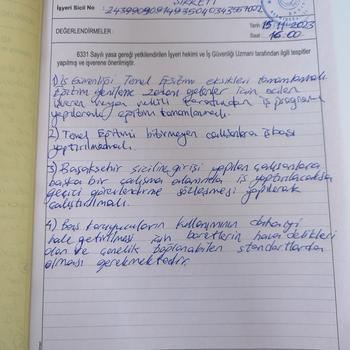 ŞİRKETİ
İşyeri Sicil No :
DEĞERLENDİRMELER :
Tarih : 15.11.2023
Saat : 16.00
6331 Sayılı yasa gereği yetkilendirilen İşyeri hekimi ve İş Güvenliği Uzmanı tarafından ilgili tespitler
yapılmış ve işverene önerilmiştir.
1) İş Güvenliği Temel Eğitimi eksikleri tamamlanmalı.
Eğitim yenileme zamanı gelenler için acilen
işveren veya vekili tarafından iş programı
yapılarak eğitim tamamlanmalı.
2) Temel Eğitimi bitmeyen çalışanlara iş başı
yaptırılmamalı.
3) Başakşehir siciline girişi yapılan çalışanlara
başka bir çalışma alanında iş yaptırılacaksa
geçici görevlendirme sözleşmesi yapılarak
çalıştırılmalı.
4) Baş koruyucuların kullanımının
hale getirilmesi için baretlerin hava delikleri
olan ve çenelik bağlanabilen standartlarda
olması gerekmektedir.